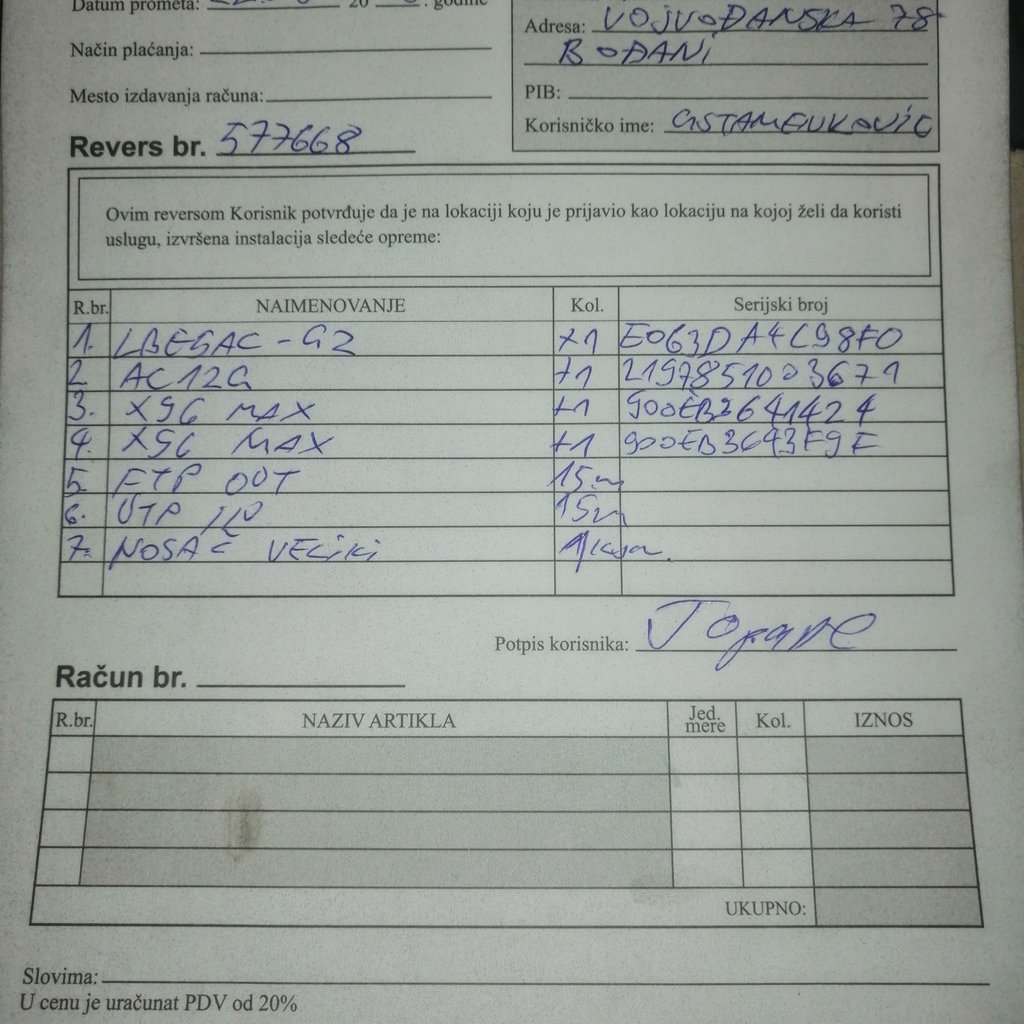 Datum prometa: 20 . godine
Način plaćanja:
Mesto izdavanja računa:
Revers br. 577668
Adresa: VOJVOĐANSKA 78
BOĐANI
PIB:
Korisničko ime: GSTAMENKOVIĆ
Ovim reversom Korisnik potvrđuje da je na lokaciji koju je prijavio kao lokaciju na kojoj želi da koristi
uslugu, izvršena instalacija sledeće opreme:
R.br. NAIMENOVANJE Kol. Serijski broj
1. LBE5AC-G2 +1 E063DA4C98F0
2. AC12G +1 2197851003671
3. X96 MAX +1 900EB2641424
4. X96 MAX +1 900EB3643F9F
5. FTP OUT 15m
6. UTP IN 15m
7. NOSAČ VELIKI 1 kom.
Potpis korisnika:
Račun br.
R.br. NAZIV ARTIKLA Jed. mere Kol. IZNOS
UKUPNO:
Slovima:
U cenu je uračunat PDV od 20%